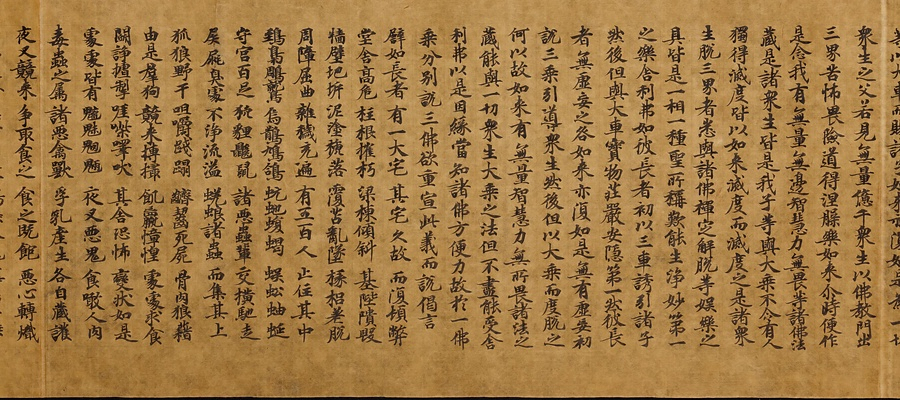 眾生之父若見無量億千眾生以佛教門出
三界苦怖畏險道得涅槃樂如來尒時便作
是念我有無量無邊智慧力無畏等諸佛法
藏是諸眾生皆是我子等與大乘不令有人
獨得滅度皆以如來滅度而滅度之是諸眾
生脫三界者悉與諸佛禪定解脫等娛樂之
具皆是一相一種聖所稱歎能生淨妙第一
之樂舍利弗如彼長者初以三車誘引諸子
然後但與大車寶物莊嚴安隱第一然彼長
者無虛妄之咎如來亦復如是無有虛妄初
說三乘引導眾生然後但以大乘而度脫之
何以故如來有無量智慧力無所畏諸法之
藏能與一切眾生大乘之法但不盡能受舍
利弗以是因緣當知諸佛方便力故於一佛
乘分別說三佛欲重宣此義而說偈言
譬如長者 有一大宅 其宅久故 而復頓弊
堂舍高危 柱根摧朽 梁棟傾斜 基陛隤毀
牆壁圮坼 泥塗褫落 覆苫亂墜 椽梠差脫
周障屈曲 雜穢充遍 有五百人 止住其中
鵄梟鵰鷲 烏鵲鳩鴿 蚖蛇蝮蠍 蜈蚣蚰蜒
守宮百足 狖貍鼷鼠 諸惡蟲輩 交橫馳走
屎尿臭處 不淨流溢 蜣蜋諸蟲 而集其上
狐狼野干 咀嚼踐蹋 齩齧死屍 骨肉狼藉
由是群狗 競來搏撮 飢羸慞惶 處處求食
鬪諍摣掣 嘊喍嘷吠 其舍恐怖 變狀如是
處處皆有 魑魅魍魎 夜叉惡鬼 食噉人肉
毒蟲之屬 諸惡禽獸 孚乳產生 各自藏護
夜叉競來 爭取食之 食之既飽 惡心轉熾